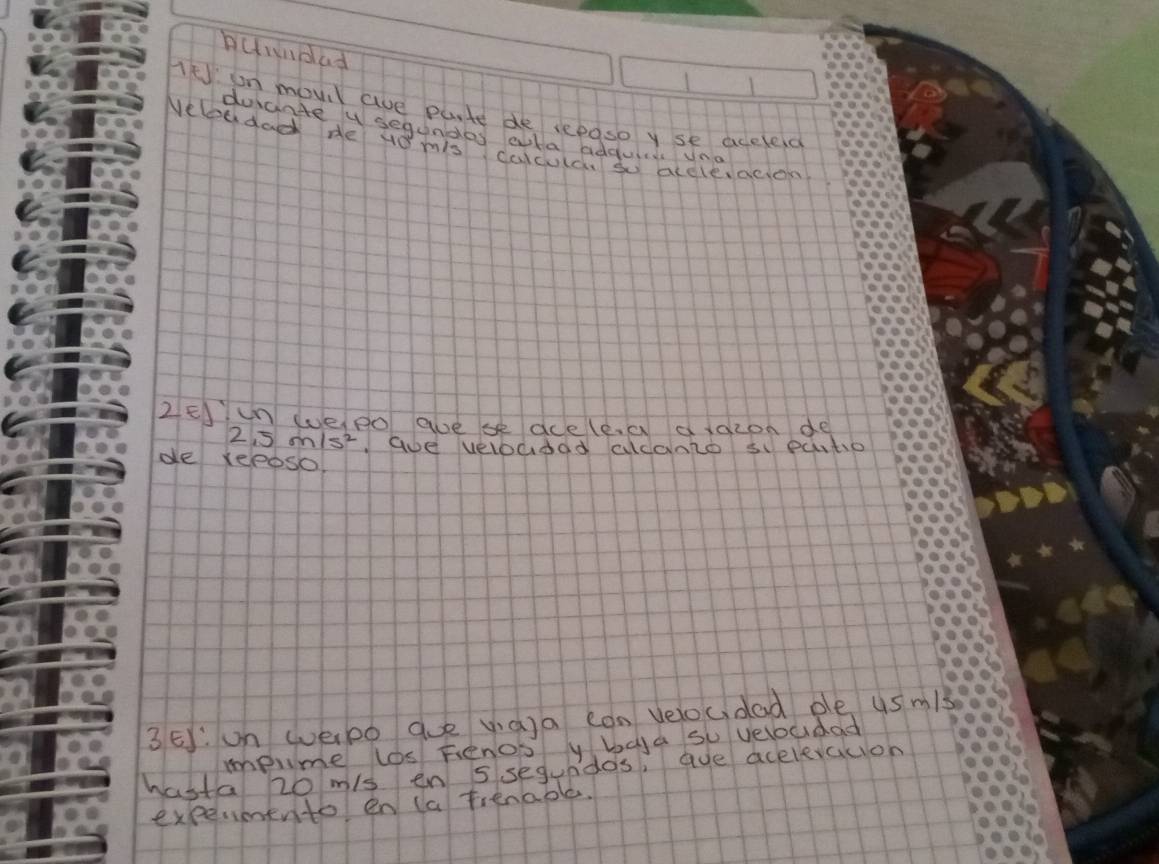 Actividad
1EJ: un movil que parte de reposo y se acelera
durante 4 segundos asta adquirir una
velocidad de 40 m/s calcular su aceleracion.
2EJ: un cuerpo que se acelera a razon de
2,5 m/s². que velocidad alcanzo si partio
de reposo.
3EJ: un cuerpo que viaja con velocidad de 45 m/s
imprime los frenos y baja su velocidad
hasta 20 m/s en 5 segundos. que aceleracion
experimento en la frenada.